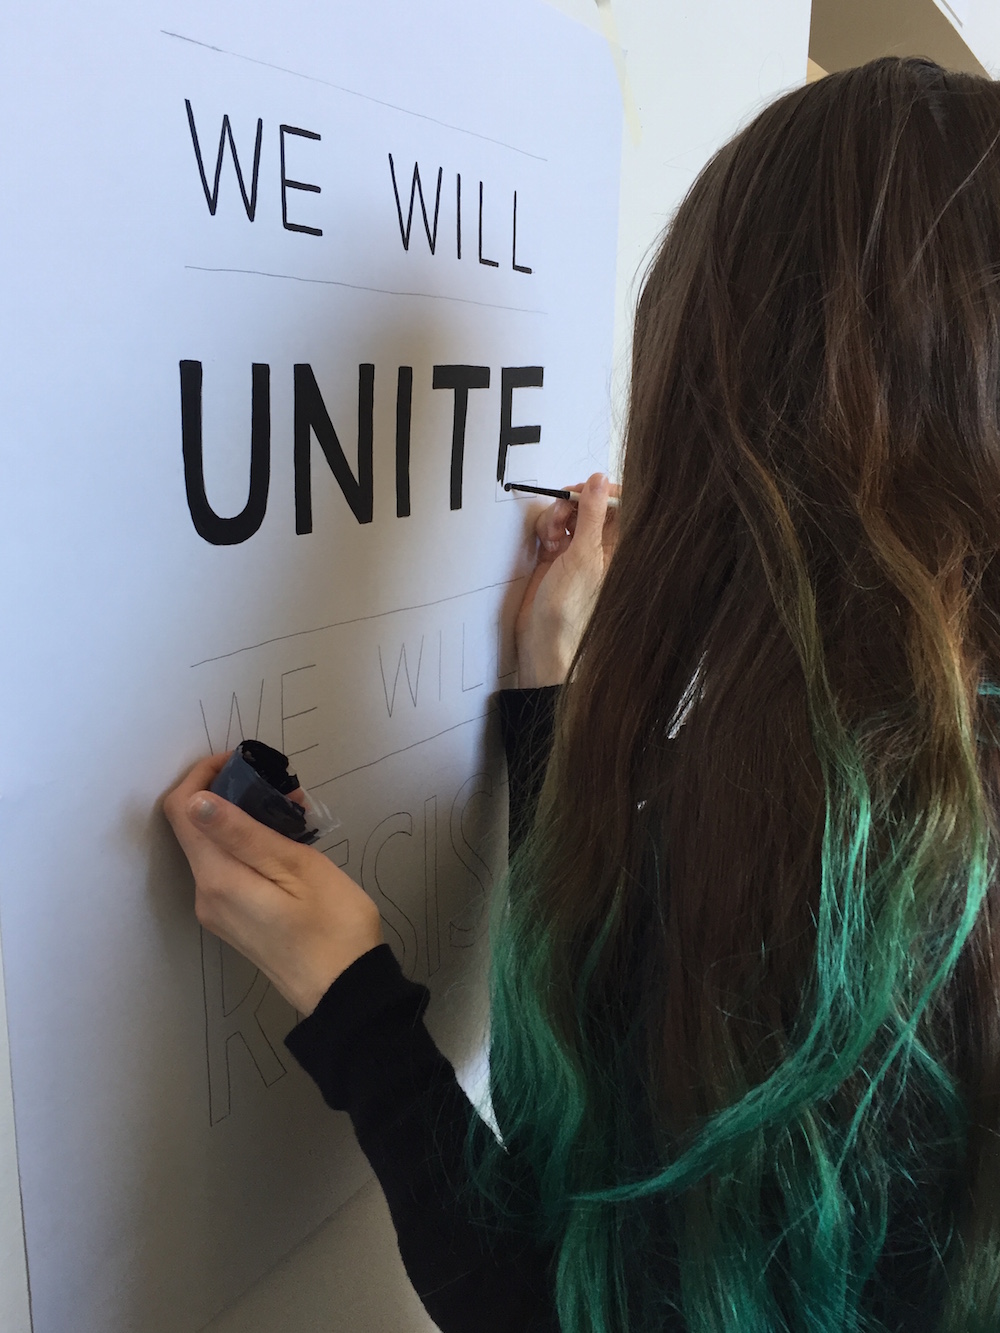 WE WILL
UNITE
WE WILL
RESIS